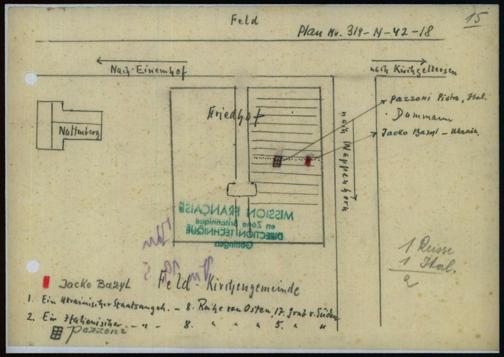 Feld
Plan Nr. 319-N-42-18
15
Nach Einemhof
nach Kirchgellersen
Pazzoni Pietro, Ital.
Friedhof
Dammann
Jacko Bazyl - Ukrain.
MISSION FRANÇAISE
en Zone Britannique
DIRECTION TECHNIQUE
Göttingen
1 Russe
1 Ital.
2
Jacko Bazyl
Feld - Kirchengemeinde
1. Ein Ukrainischer Staatsangeh. - 8. Reihe von Osten, 17. Grab v. Süden
2. Ein Italienischer - " - 8. " " " 5. " "
Pazzoni